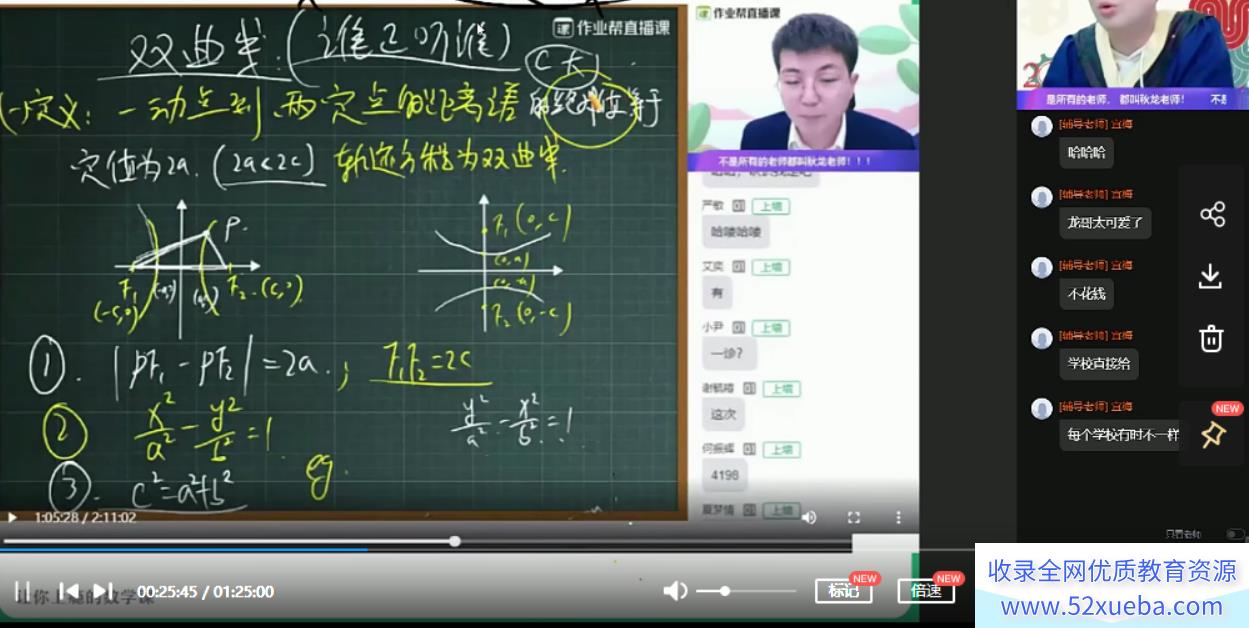 作业帮直播课
双曲线:(谁正听谁)
C大
(一)定义:一动点到两定点的距离谱的绝对值等于
定值为2a.(2a<2c)轨迹方程为双曲线.
P.
F₁
(-c,0)
F₂.(c,0)
F₁(0,c)
F₂(0,-c)
①. |PF₁-PF₂|=2a.; F₁F₂=2c
② x²/a²-y²/b²=1
y²/a²-x²/b²=1
③. c²=a²+b²
eg.
1:05:28 / 2:11:02
作业帮直播课
不是所有的老师都叫秋龙老师!!!
严敏 上墙
哈喽哈喽
艾奕 上墙
有
小尹 上墙
一诊?
上墙
这次
上墙
4198
夏梦情 上墙
是所有的老师, 都叫秋龙老师! 不是
[辅导老师] 宜梅
哈哈哈
[辅导老师] 宜梅
龙哥太可爱了
[辅导老师] 宜梅
不花钱
[辅导老师] 宜梅
学校直接给
[辅导老师] 宜梅
每个学校有时不一样
NEW
只看老师
让你上瘾的数学课
00:25:45 / 01:25:00
标记
NEW
倍速
NEW
收录全网优质教育资源
www.52xueba.com